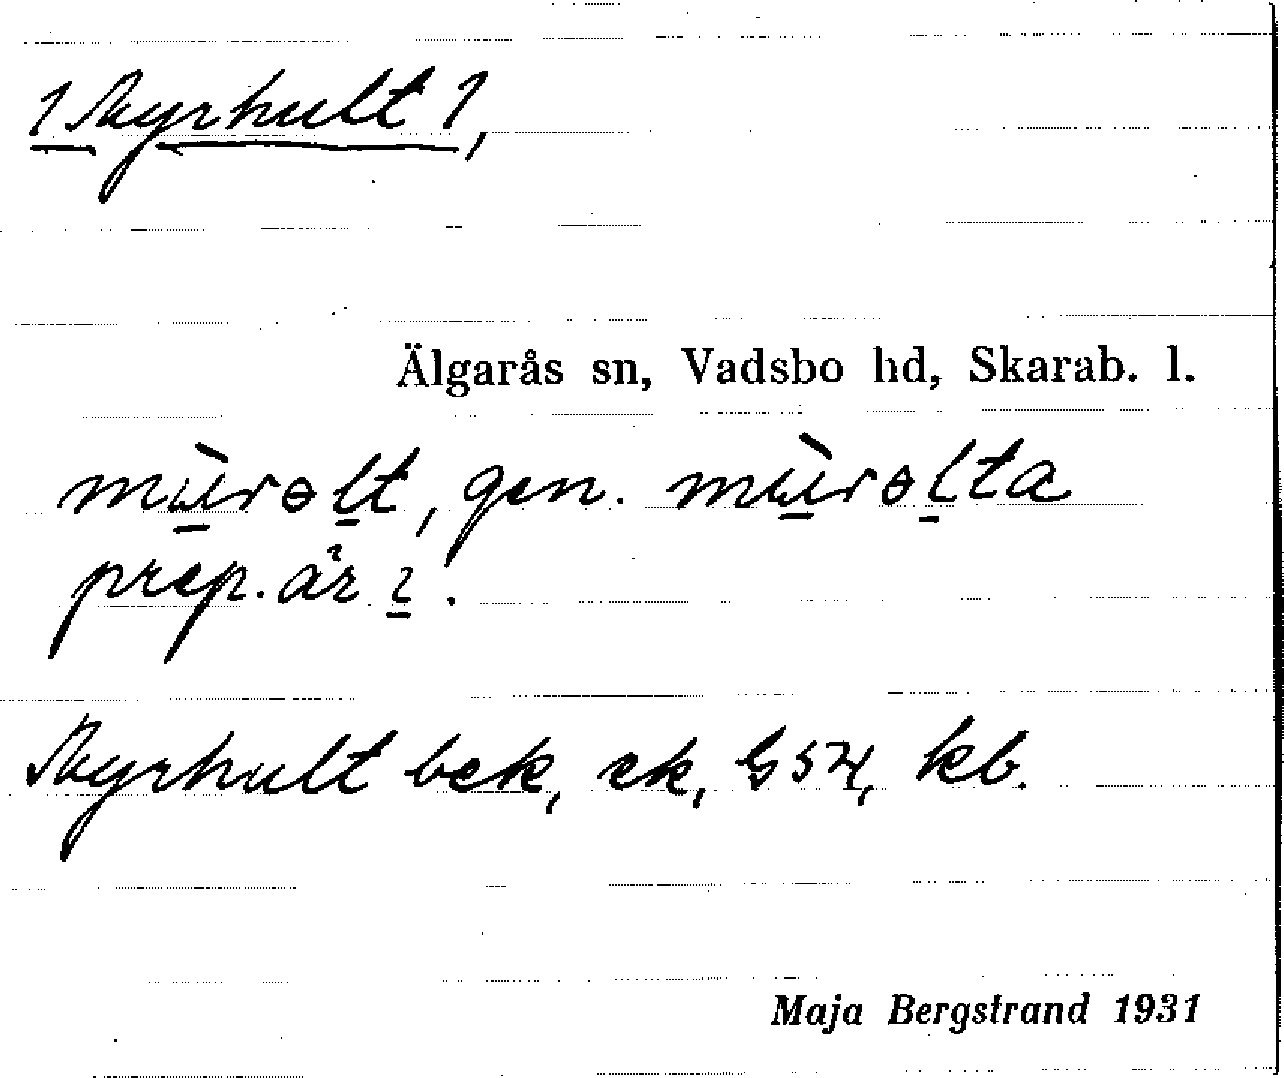 1 Myrhult 1,
Älgarås sn, Vadsbo hd, Skarab. l.
mùrɵlt, gen. mùrɵlta
prep. är i.
Myrhult bek, ek, G 54, kb.
Maja Bergstrand 1931